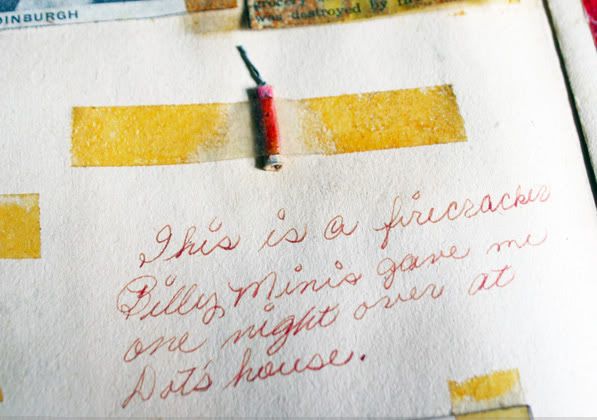 DINBURGH
grocery
was destroyed by fire
This is a firecracker
Billy Minis gave me
one night over at
Dot's house.